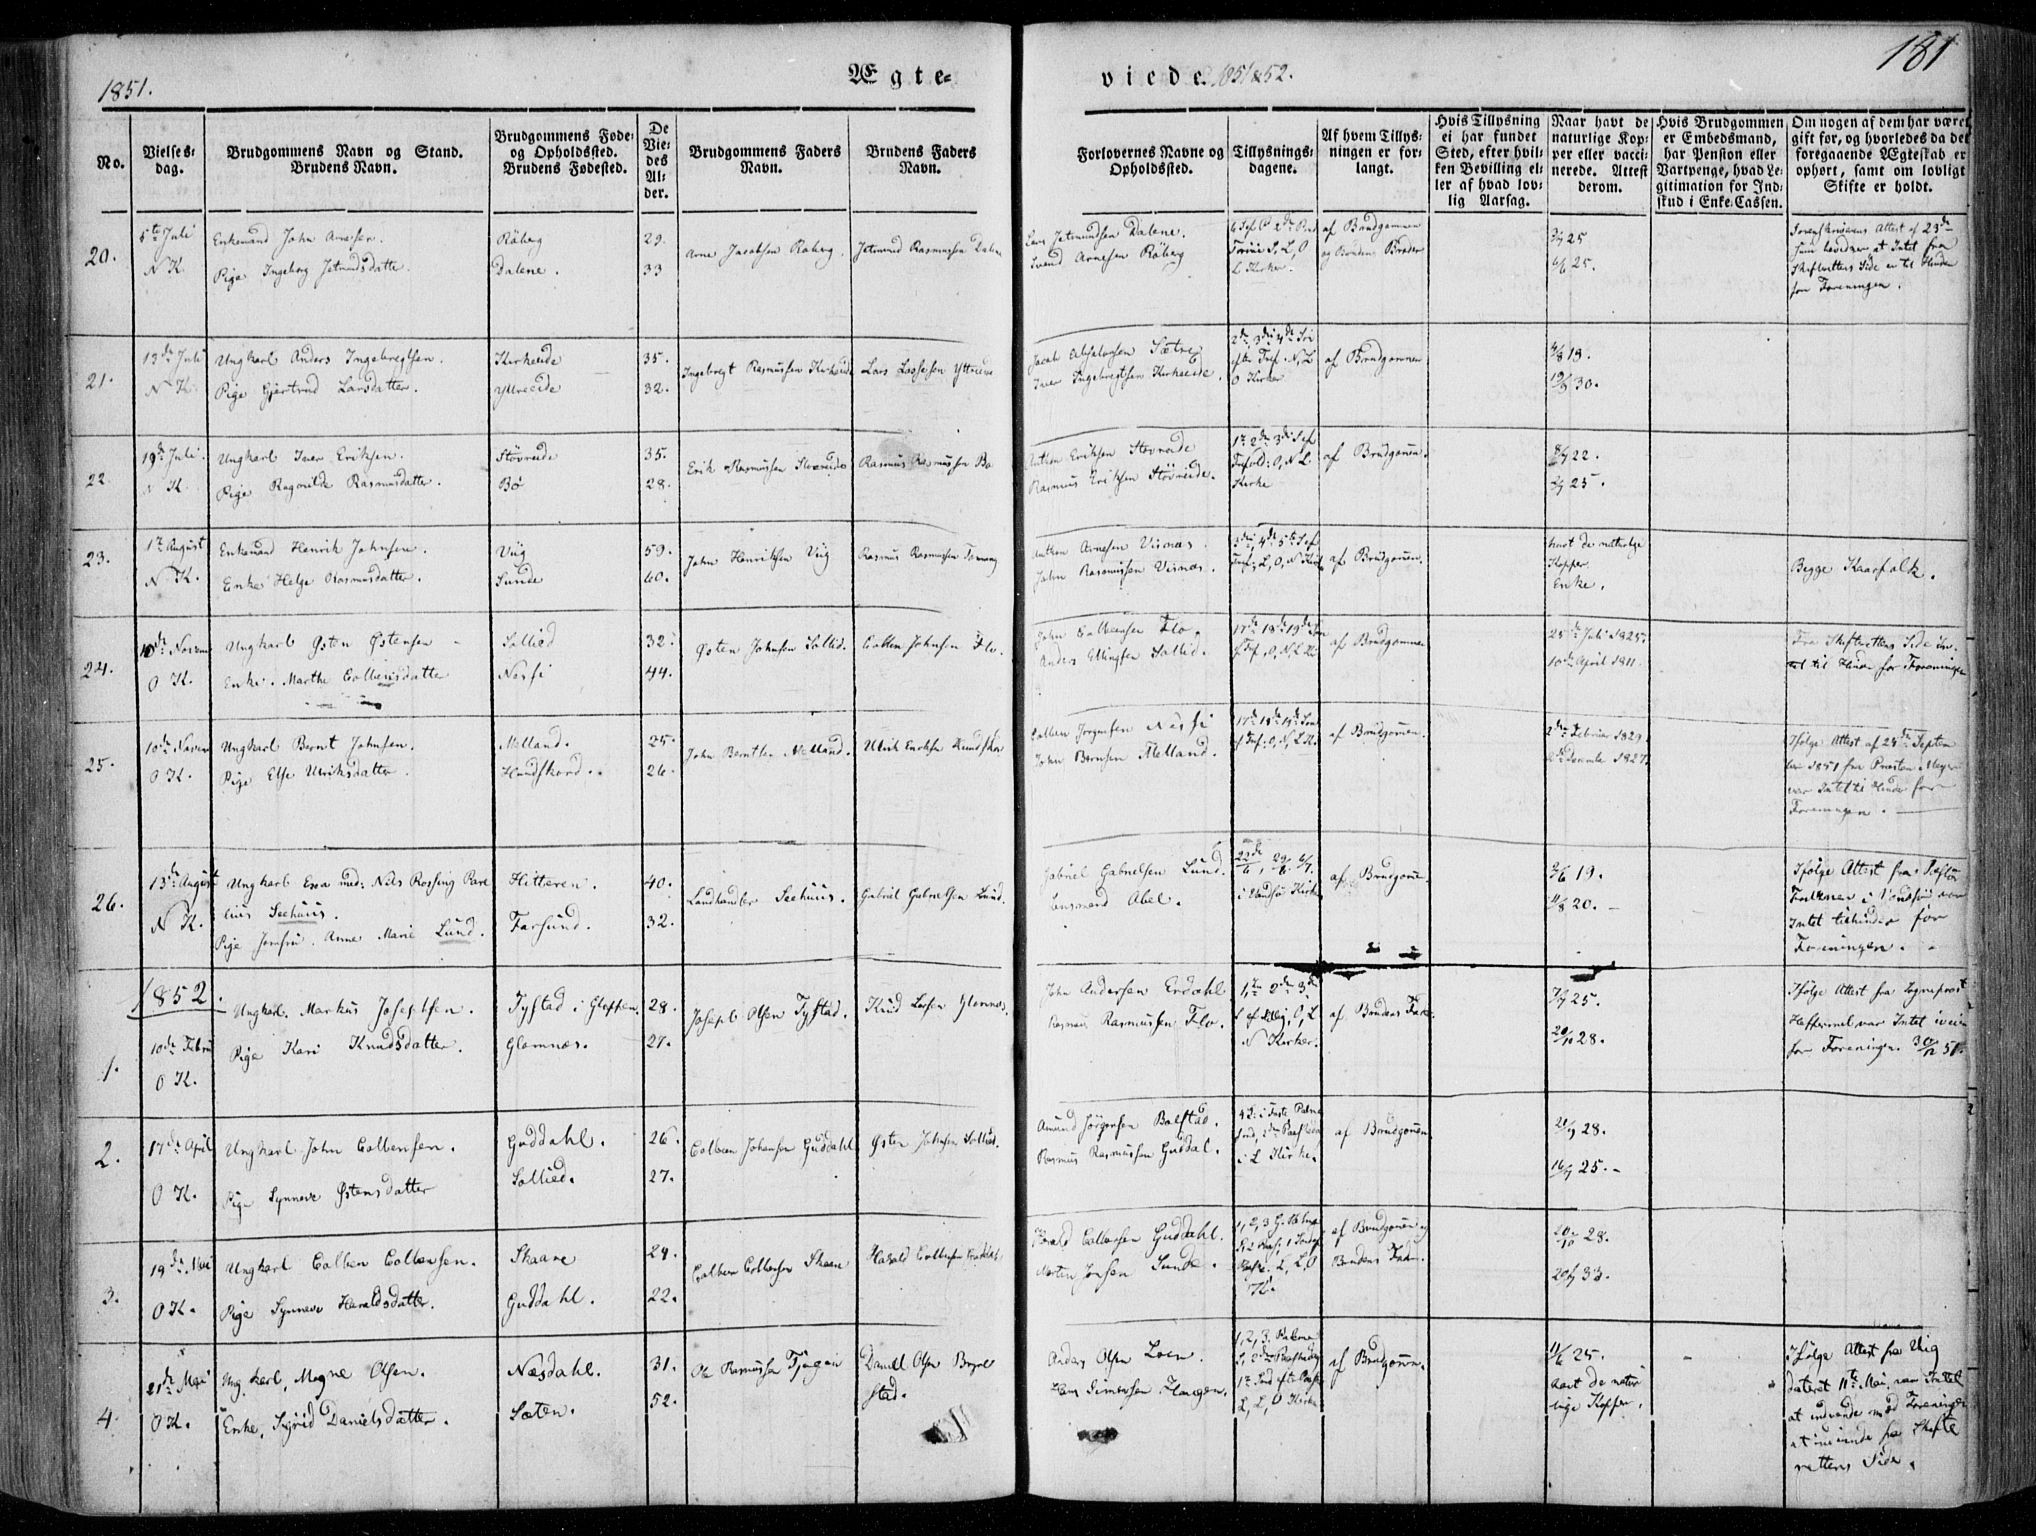 1851.
Ægte=
viede. 1851 & 52.
181
No.
Vielses=
dag.
Brudgommens Navn og Stand.
Brudens Navn.
Brudgommens Føde=
og Opholdssted.
Brudens Fødested.
De
Vie=
des
Al=
der.
Brudgommens Faders
Navn.
Brudens Faders
Navn.
Forlovernes Navne og
Opholdssted.
Tillysnings=
dagene.
Af hvem Tillys=
ningen er for=
langt.
Hvis Tillysning
ei har fundet
Sted, efter hvil=
ken Bevilling el=
ler af hvad lov=
lig Aarsag.
Naar havt de
naturlige Kop=
per eller vacci=
nerede. Attest
derom.
Hvis Brudgommen
er Embedsmand,
har Pension eller
Vartpenge, hvad Le=
gitimation for Ind=
skud i Enke=Cassen.
Om nogen af dem har været
gift før, og hvorledes da det
foregaaende Ægteskab er
ophørt, samt om lovligt
Skifte er holdt.
20.
5te Juli
N K.
Enkemand John Arnesen.
Pige Ingeborg Jetmundsdatter.
Råberg
Dalene.
29.
33
Arne Jacobsen Råberg.
Jetmund Rasmussen Dalene
Lars Jetmundsen Dalene.
Svend Arnesen Råberg
L Kirker.
af Brudgommen
og Brudens Broder
25
6/6 25.
Sorenskriverens Attest af 23de
Juni beviser at Intet fra
Skifterettens Side er til Hinder
for Foreningen.
21.
13de Juli
N K.
Ungkarl Anders Ingebregtsen.
Pige Gjertrud Larsdatter.
Kirkeide
Yttreeide
35.
32.
Ingebregt Rasmussen Kirkeide
Lars Lassesen Yttreeide
Jacob Absalonsen Sætre
Iver Ingebregtsen Kirkeeide.
2de, 3die 4de Søn
efter Tref. N, L
O Kirker
af Brudgommen
4/8 19.
19/9 30.
22.
19de Juli.
N K.
Ungkarl Iver Eriksen.
Pige Ragnilde Rasmusdatter.
Støvreide
Bø
35.
28.
Erik Rasmussen Støvreide
Rasmus Rasmussen Bø
Anthon Eriksen Støvreide
Rasmus Eriksen Støvreide.
1te 2de 3die S. ef
Trefold: O, N L.
Kirke
af Brudgommen.
22.
25.
23.
1te August
N K.
Enkemand Henrik Johnsen.
Enke Helge Rasmusdatter.
Viig
Sunde
59.
60.
John Henriksen Viig
Rasmus Rasmussen
Anthon Arnesen Visnæs.
John Rasmussen Visnæs.
3die, 4de 5te S ef
Tref, L, O, N Kirk
af Brudgommen.
havt de naturlige
Kopper
Enke.
Begge Kaarfolk.
24.
10de Novem
O K.
Ungkarl Østen Østensen
Enke. Marthe Colbensdatter
Sollied
Nessi
32.
44.
Østen Johnsen Sollid.
Colben Johnsen Flo.
John Colbensen Flo.
Anders Ellingsen Sollid.
17de 18de 19de Søn
ef Tref, O, N, L Kir
af Brudgommen
25de Juli 1825.
10de April 1811.
Fra Skifterettens Side In-
tet til Hinder for Foreningen
25.
10de Novem
O K.
Ungkarl Bernt Johnsen.
Pige Else Ulriksdatter.
Melland.
Hundskord.
25.
26.
John Berntsen Melland.
Ulrik Eriksen Hundskor
Colben Jørgensen Nessi
John Berntsen Melland.
17de 18de 19de Søn
ef Tref. O, N, L K.
af Brudgommen.
2den Februar 1829
December 1827.
Ifølge Attest af 24de Septem
ber 1851 fra Præsten Meyer
var Intet til Hinder for
Foreningen.
26.
13de August
N K.
Ungkarl Exa med: Nils Rossing Pare
lius Seehuus.
Pige Jomfru. Anne Marie Lund.
Hitteren.
Farsund.
40.
32.
Landhandler Seehuus.
Gabriel Gabrielsen Lund.
Gabriel Gabrielsen Lund.
Lensmand Abel.
22de/6, 29/6, 6/7.
i Vandsø Kirke
af Brudgommen.
2/6 19.
11/8 20.
Ifølge Attest fra Pastor
i Vandsø var
Intet tilhinder for
Foreningen.
1852.
1.
10de Febru
O K.
Ungkarl. Markus Josephsen.
Pige Kari Knudsdatter.
Tystad i Gloppen.
Glomnæs.
28.
27.
Joseph Olsen Tystad.
Knud Larsen Glomnæs.
John Andersen Erdahl
Rasmus Rasmussen Flo.
1te 2de 3de
S ef Hellig, O, L
N Kirker.
af Brudens Fader.
25.
20/10 28.
Ifølge Attest fra Sogneprest
Heftermel var Intet iveien
for Foreningen. 30/12 51.
2.
17de April
O K.
Ungkarl John Colbensen.
Pige Synneve Østensdatter
Guddahl.
Sollied.
26.
27.
Colben Johansen Guddahl
Østen Johnsen Sollied.
Amund Jørgensen Bolstad.
Rasmus Rasmussen Guddal.
4 S: i Faste Palme
Sønd, 2den Paaskedag
i L Kirke.
af Brudgommen.
28.
25.
3.
19de Mai
O K.
Ungkarl Colben Colbensen.
Pige Synneve Haraldsdatter.
Skaare
Guddahl.
24.
22.
Colben Colbensen Skaare
Harald Colbensen Guddahl
Harald Colbensen Guddahl.
Morten Jensen Sunde.
K.
af Brudgommen og
Brudens Fader.
20/10 28.
33.
4.
21de Mai
O K.
Ung. karl, Magne Olsen.
Enke, Sigrid Danielsdatter.
Næsdahl.
Sæten.
31.
52.
Ole Rasmussen Tjugen
Daniel Olsen Bryn
stad.
Anders Olsen Loen.
Hans Simensen Haugen.
1, 2, 3. Palme
S, 2den Paaskedag
1te Sønd efter Paaske
L, L, O Kirke
af Brudgommen.
11/6 25.
havt de natur
lige Kopper.
Ifølge Attest fra Viig
dateret 11te Mai, var Intet
at indvende mod Foreningen
at indvende fra Skifte
rettens Side.